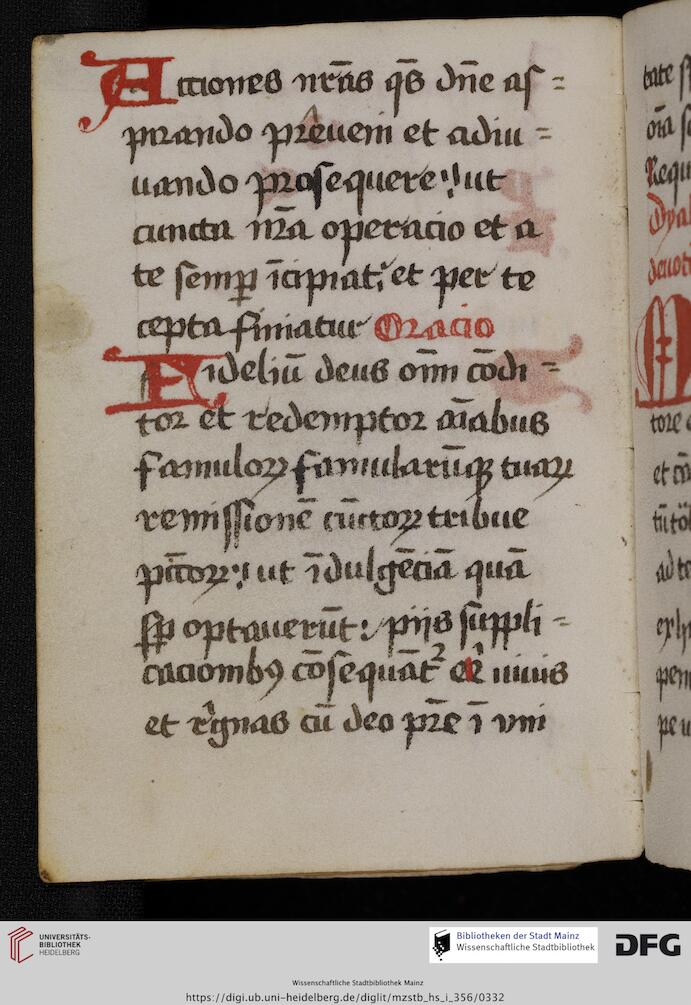 Actiones nr̄as q̄s dn̄e as=
pirando preueni et adiu=
uando prosequere ut
cuncta nr̄a operacio et a
te semꝑ īcipiat et per te
cepta finiatur Oracio
Fideliū deus om̄ī cōdi=
tor et redemptor aīabus
famuloꝝ famularūqꝫ tuaꝝ
remissionē cūctoꝝ tribue
pctōꝝ ut īdulgēciā quā
sꝑ optauerūt: pijs suppli=
cacionibꝯ cōsequāt᷑ uiuis
et regnas cū deo pr̄e ī vni
tate
oīa
Requi
tore
et
ad te
UNIVERSITÄTS-
BIBLIOTHEK
HEIDELBERG
Bibliotheken der Stadt Mainz
Wissenschaftliche Stadtbibliothek
DFG
Wissenschaftliche Stadtbibliothek Mainz
https://digi.ub.uni-heidelberg.de/diglit/mzstb_hs_i_356/0332